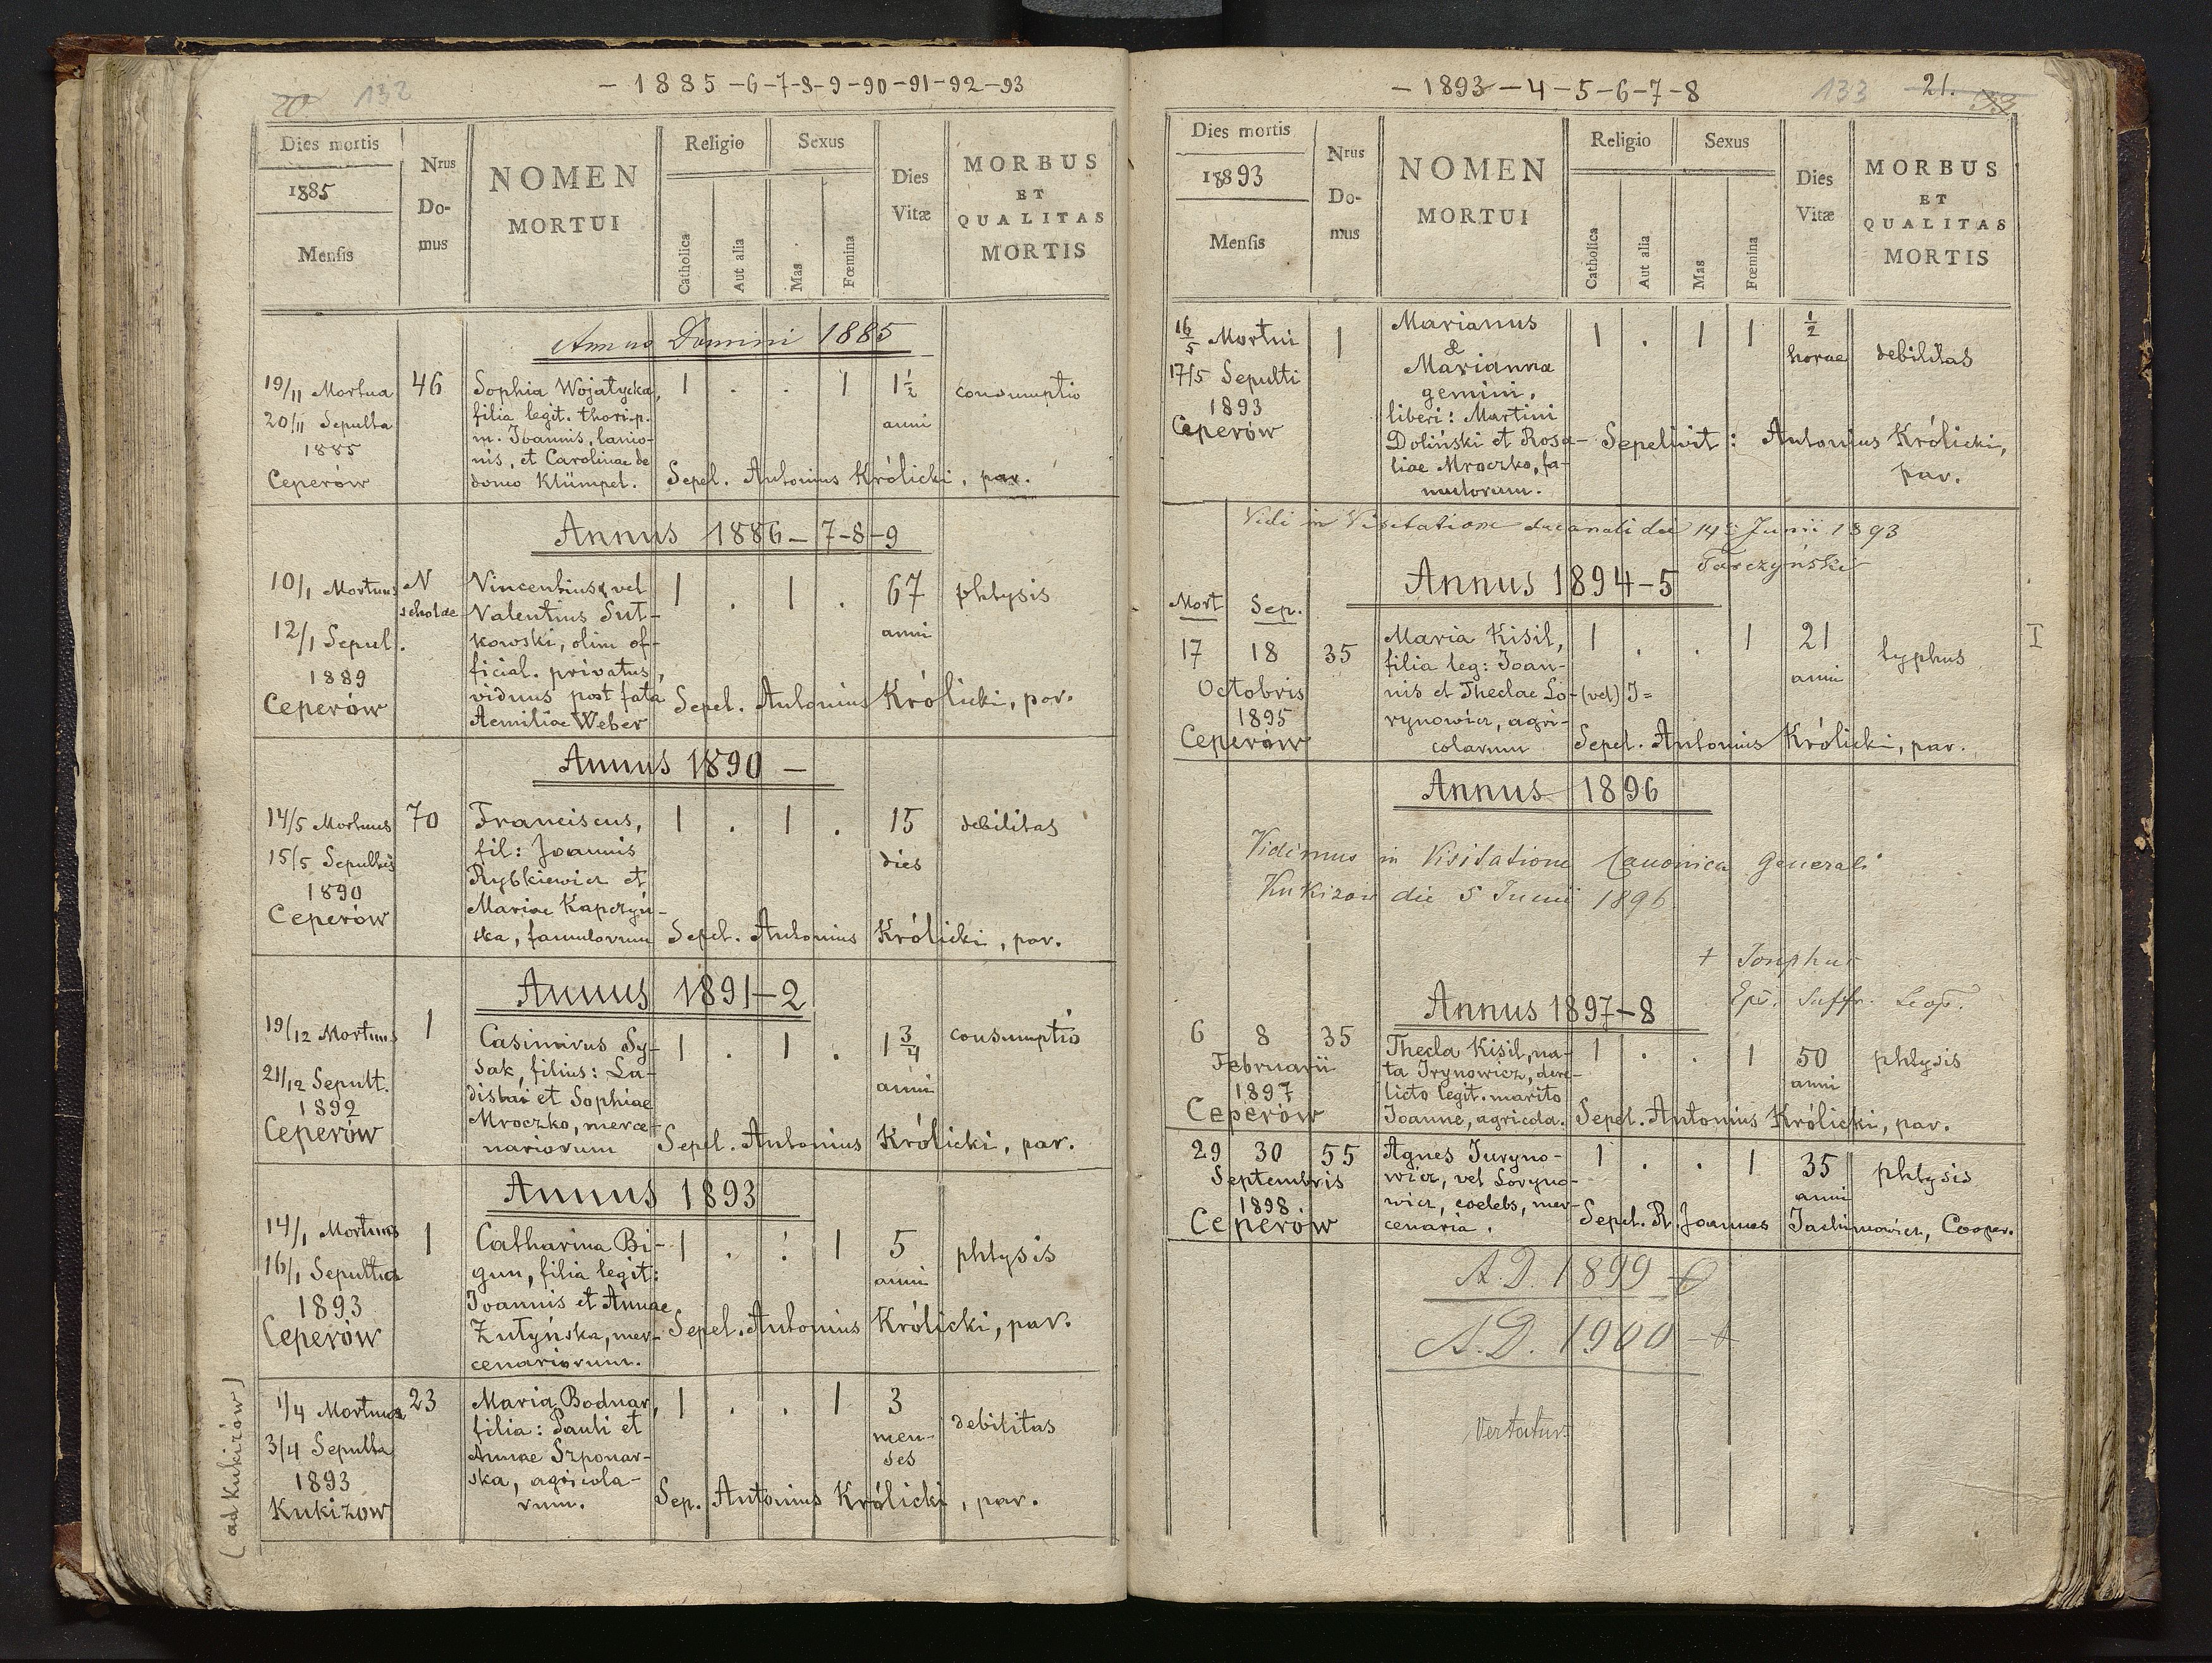 132
- 1885 -6-7-8-9-90-91-92-93
Dies mortis
1885
Mensis
Nrus
Do-
mus
NOMEN
MORTUI
Religio
Catholica
Aut alia
Sexus
Mas
Fœmina
Dies
Vitæ
MORBUS
ET
QUALITAS
MORTIS
Anno Domini 1885
19/11 Mortua
20/11 Sepulta
1885
Ceperów
46
Sophia Wojatycka,
filia legit. thori. p.
m. Joannis, lanio-
nis, et Carolinae de
domo Klümpel.
1 . . 1
1 1/2
anni
consumptio
Sepel. Antonius Królicki, par.
Annus 1886-7-8-9
10/1 Mortuus
12/1 Sepul.
1889
Ceperów
N
scholae
Vincentius, vel
Valentius Sut-
kowski, olim of-
ficial. privatus,
viduus post fata
Aemiliae Weber
1 . 1 .
67
anni
phtysis
Sepel. Antonius Królicki, par.
Annus 1890 -
14/5 Mortuus
15/5 Sepultus
1890
Ceperów
70
Franciscus,
fil: Joannis
Rybkiewicz et
Mariae Kapczyń-
ska, famulorum
1 . 1 .
15
dies
debilitas
Sepel. Antonius Królicki, par.
Annus 1891-2
19/12 Mortuus
21/12 Sepult.
1892
Ceperów
1
Casimirus Sy-
sak, filius: La-
dislai et Sophiae
Mroczko, merce-
nariorum
1 . 1 .
1 3/4
anni
consumptio
Sepel. Antonius Królicki, par.
Annus 1893
14/1 Mortuus
16/1 Sepulta
1893
Ceperów
1
Catharina Bi-
gun, filia legit:
Joannis et Annae
Żutyńska, mer-
cenariorum.
1 . . 1
5
anni
phtysis
Sepel. Antonius Królicki, par.
(ad Kukizów)
1/4 Mortua
3/4 Sepulta
1893
Kukizów
23
Maria Bodnar,
filia: Pauli et
Annae Szponar-
ska, agricola-
rum.
1 . . 1
3
men-
ses
debilitas
Sep. Antonius Królicki, par.
- 1893 - 4 - 5 - 6 - 7 - 8
133
21.
Dies mortis
1893
Mensis
Nrus
Do-
mus
NOMEN
MORTUI
Religio
Catholica
Aut alia
Sexus
Mas
Fœmina
Dies
Vitæ
MORBUS
ET
QUALITAS
MORTIS
16/5 Mortui
17/5 Sepulti
1893
Ceperów
1
Marianus
&
Marianna
gemini,
liberi: Martini
Doliński et Rosa-
liae Mroczko, fa-
mulorum.
1 . 1 1
1/2
horae
debilitas
Sepelivit: Antonius Królicki,
par.
Vidi in Visitatione decanali die 14 Junii 1893
Tarczyński
Annus 1894-5
Mort Sep.
17 18 35
Octobris
1895
Ceperów
Maria Kisil,
filia leg: Joan-
nis et Theclae Lo- (vel) J=
rynowicz, agri-
colarum
1 . . 1
21
anni
typhus
I
Sepel. Antonius Królicki, par.
Annus 1896
Vidimus in Visitatione Canonica Generali
Kukizow die 5 Junii 1896
+ Josephus
Eps. Suffr. Leop.
Annus 1897-8
6 8 35
Februarii
1897
Ceperów
Thecla Kisil, na-
ta Irynowicz, dere-
licto legit. marito
Joanne, agricola.
1 . . 1
50
anni
phtysis
Sepel. Antonius Królicki, par.
29 30 55
Septembris
1898.
Ceperów
Agnes Juryno-
wicz, vel Loryno-
wicz, coelebs, mer-
cenaria.
1 . . 1
35
anni
phtysis
Sepel. R. Joannes Jachimowicz, Cooper.
A.D. 1899
A.D. 1900
Vertatur